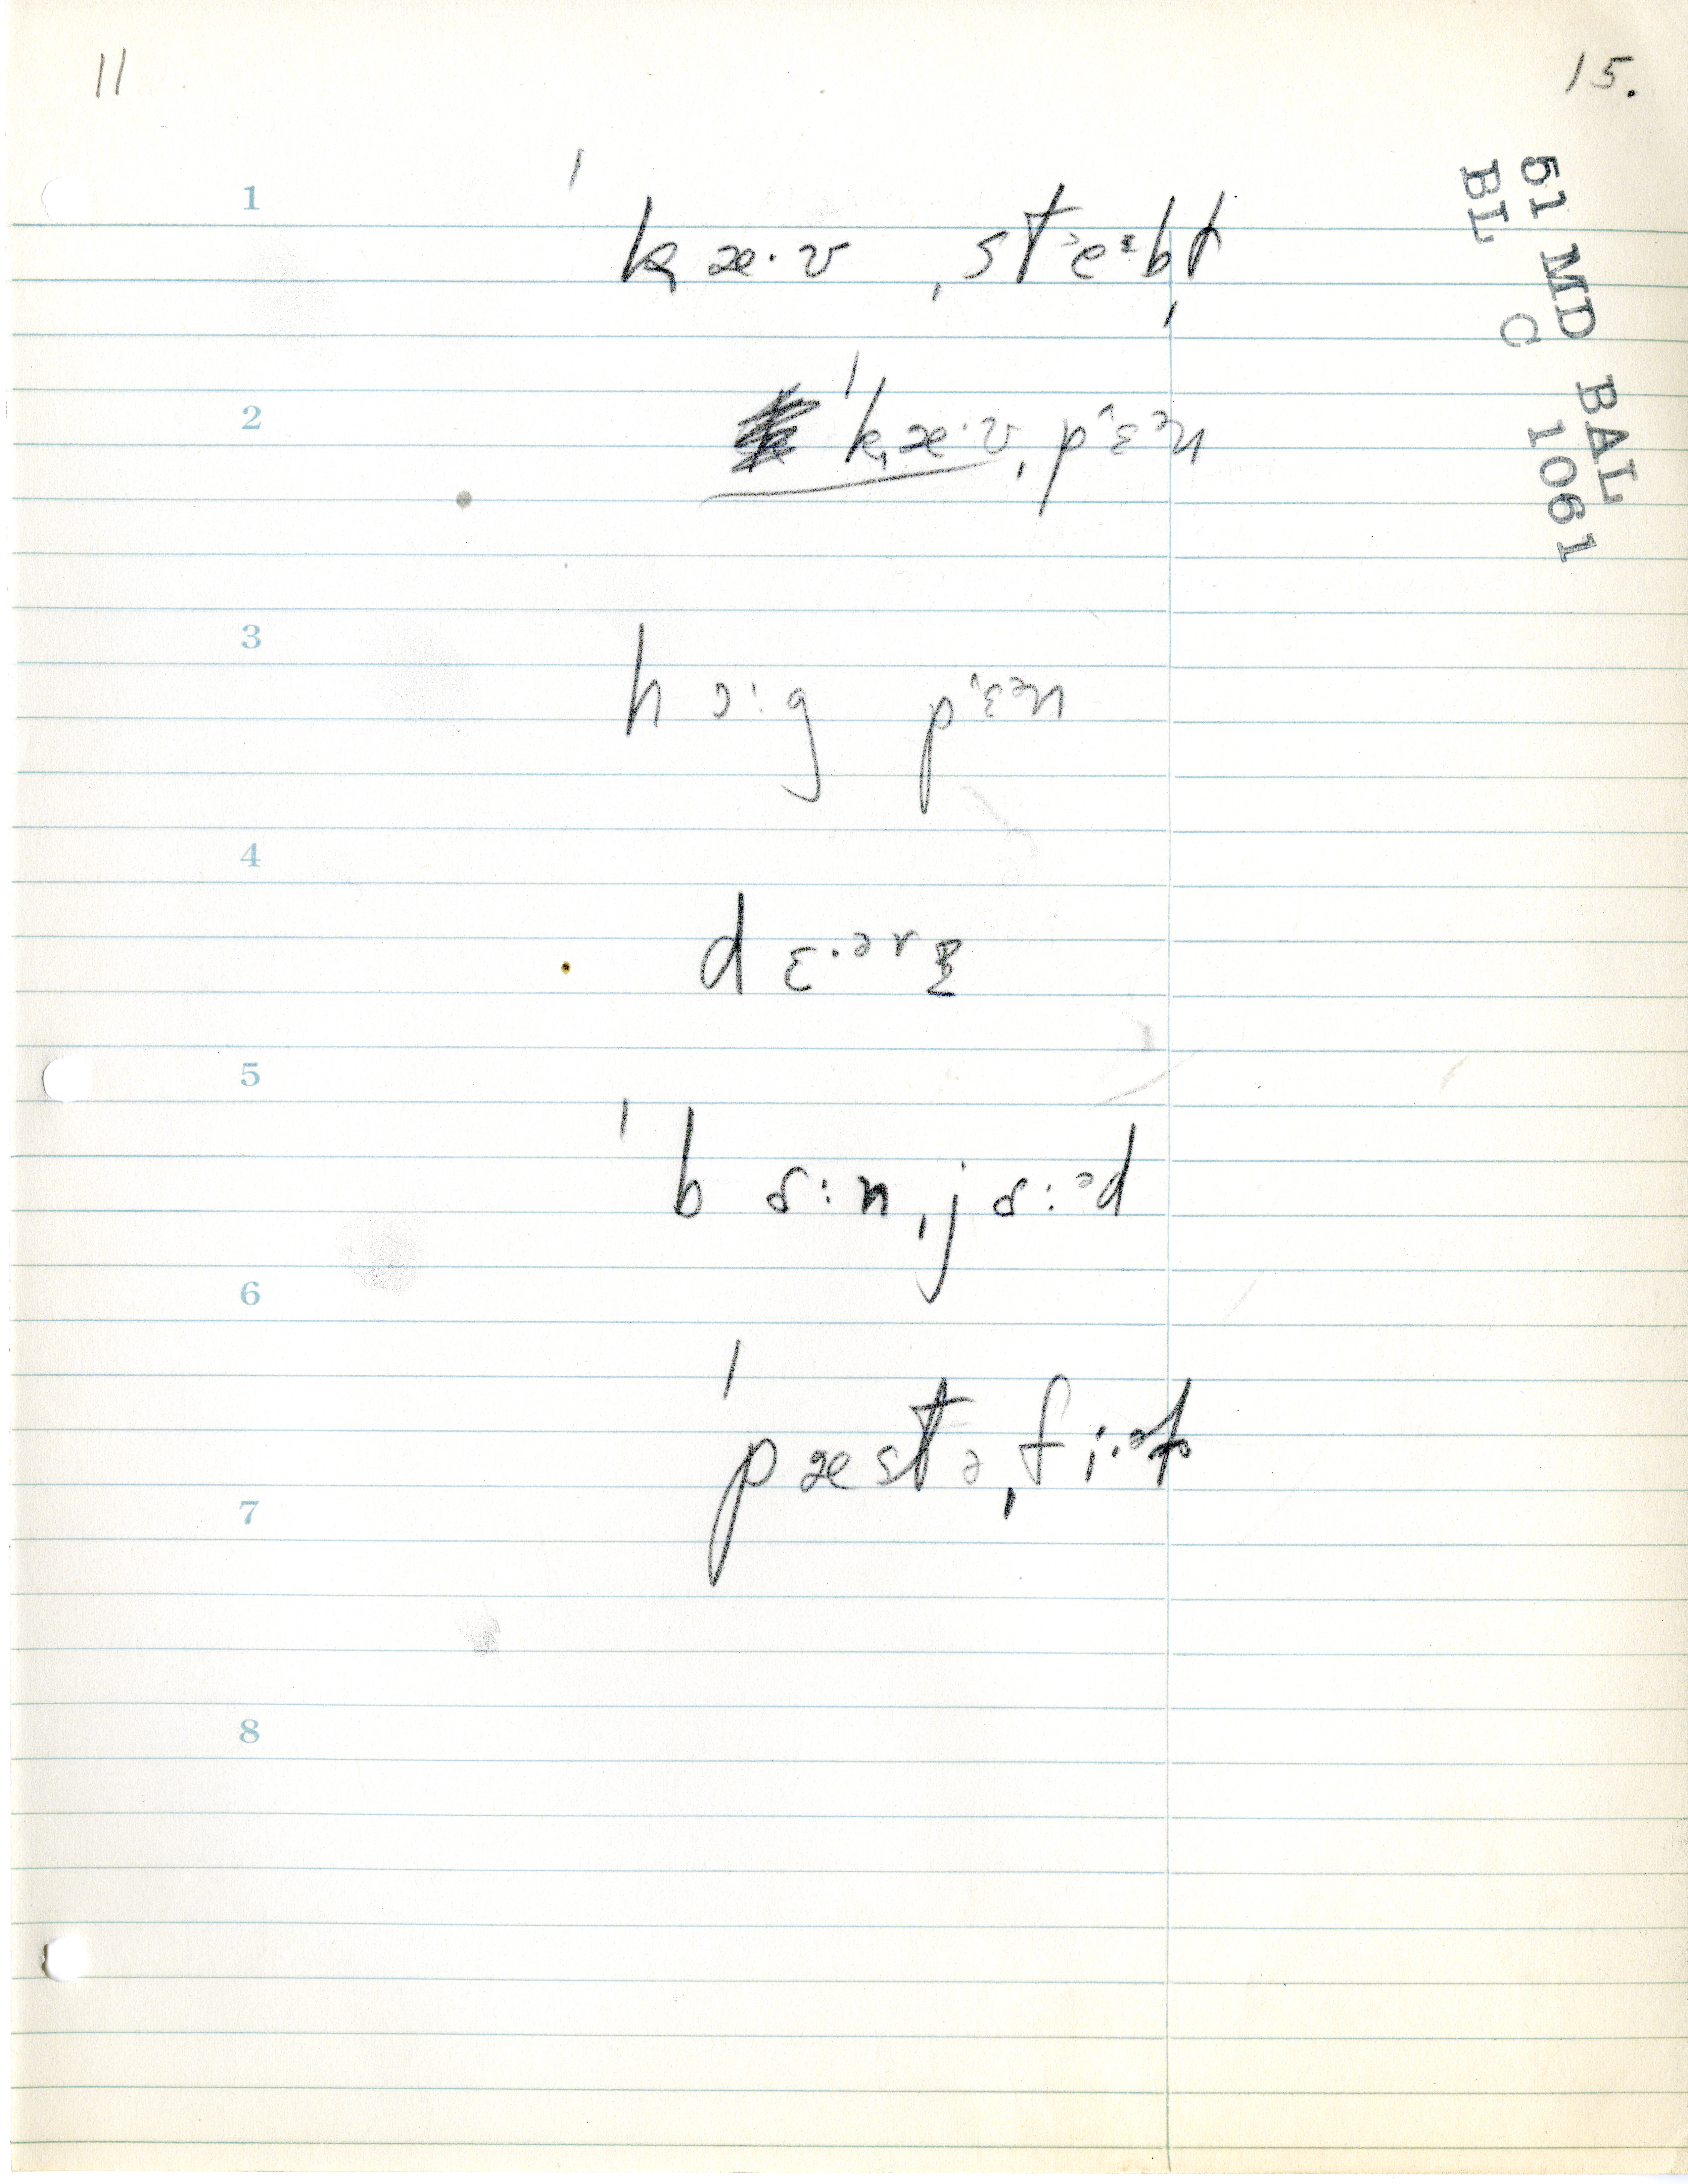 11
15.
51 MD BAL
BL C 1061
1
ˈkæ·v ˌsteᵊbḷ
2
ˈkæ·v ˌpɛˑᵊn
3
hɔːg pɛˑᵊn
4
dɛ·ᵊrɪ
5
ˈbɑːnˌjɑːᵊd
6
ˈpæstəˌfiːᵊḷ
7
8